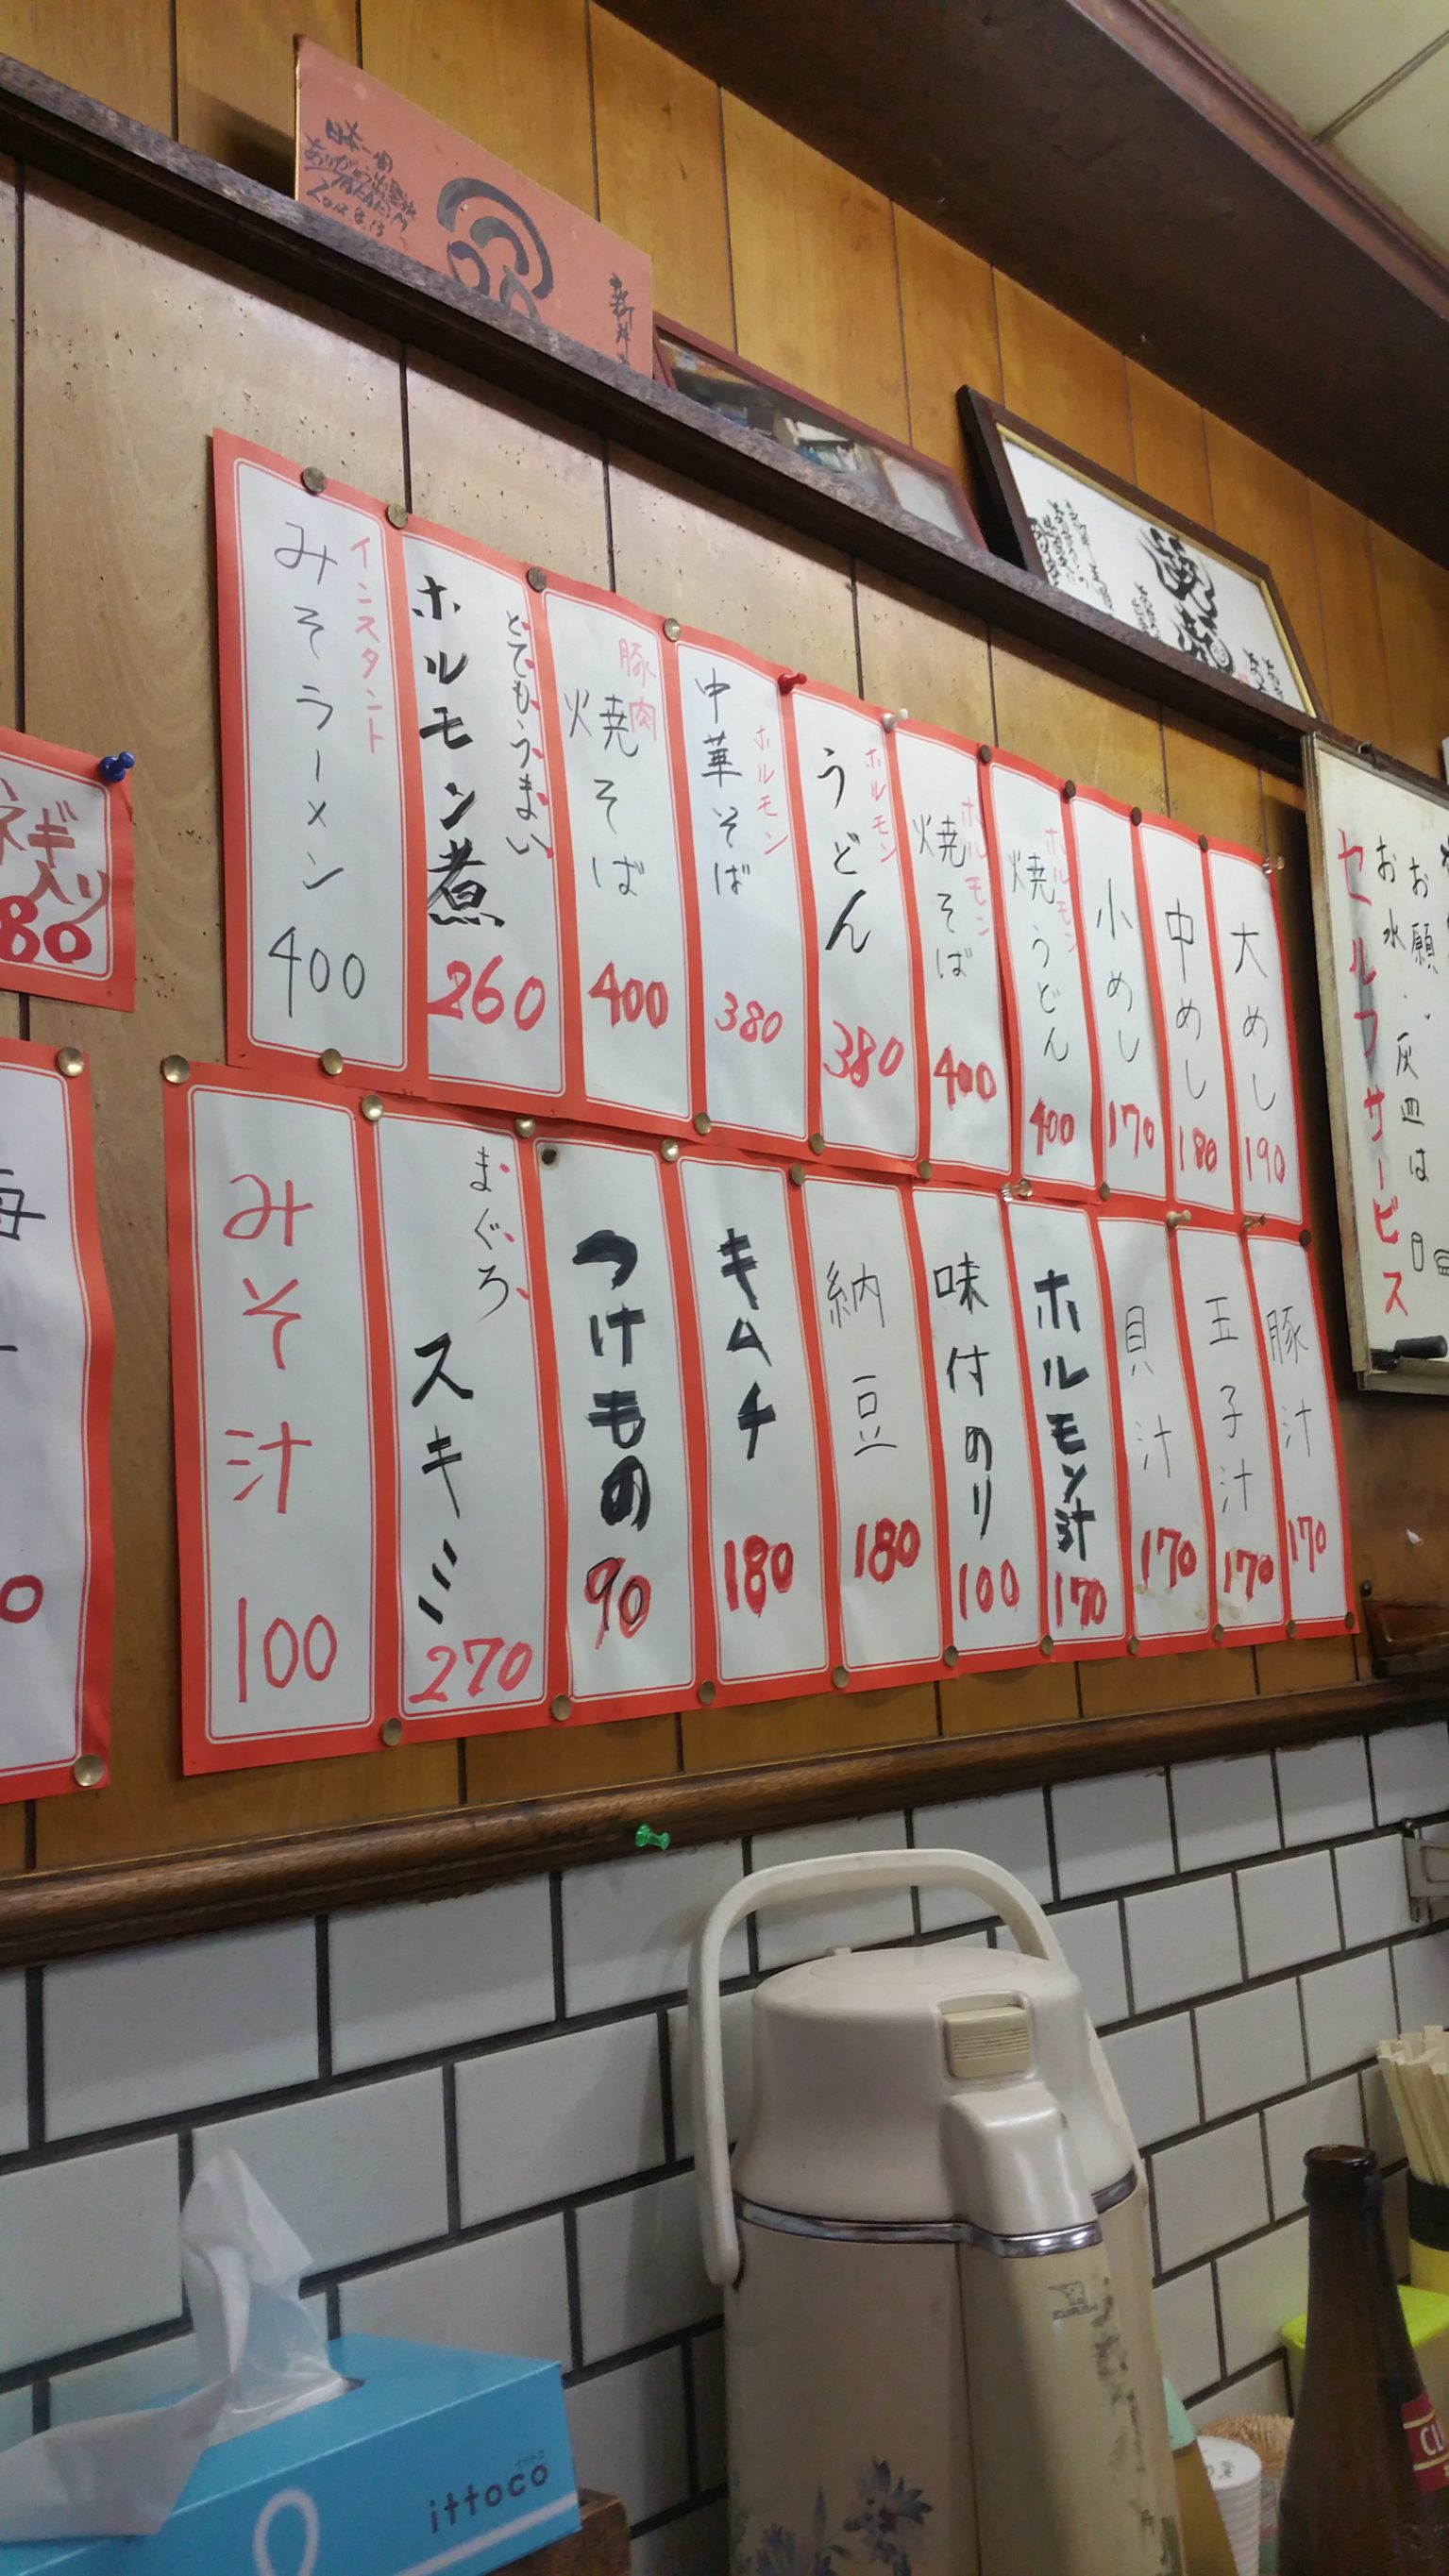 日本一周
ありがとう
インスタント
みそラーメン
400
とてもうまい
ホルモン煮
260
豚肉
焼そば
400
ホルモン
中華そば
380
ホルモン
うどん
380
ホルモン
焼そば
400
ホルモン
焼うどん
400
小めし
170
中めし
180
大めし
190
ネギ入り
80
みそ汁
100
まぐろ
スキミ
270
つけもの
90
キムチ
180
納豆
180
味付のり
100
ホルモン汁
170
貝汁
170
玉子汁
170
豚汁
170
お願
お水・灰皿は
セルフサービス
ittoco